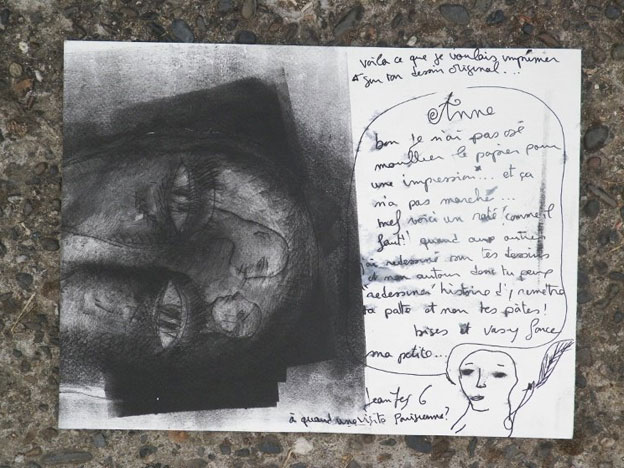 voilà ce que je voulais imprimer
sur ton dessin original...
Anne
bon je n'ai pas osé
mouiller le papier pour
une impression... et ça
n'a pas marché...
bref voici un raté comme il
faut! quand aux autres
j'ai redessiné sur tes dessins
et non autour dont tu peux
"redessiner" histoire d'y remettre
ta patte et non tes pâtes!
bises et vasy fonce
ma petite...
Jean Yes G
à quand une visite Parisienne?